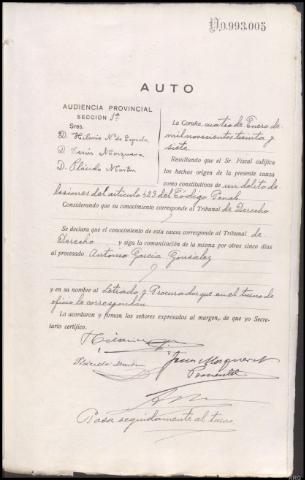 Nº 0.993.005
AUTO
AUDIENCIA PROVINCIAL
SECCIÓN 1ª
Sres.
D. Hilario Nº de
D. Jesús Marquina
D. Plácido Martín
La Coruña, cuatro de Enero de
mil novecientos treinta y
siete
Resultando que el Sr. Fiscal califica
los hechos origen de la presente causa
como constitutivos de un delito de
lesiones del artículo 423 del Código Penal.
Considerando que su conocimiento corresponde al Tribunal de Derecho
Se declara que el conocimiento de esta causa corresponde al Tribunal de
Derecho y siga la comunicación de la misma por otros cinco días
al procesado Antonio García González
y en su nombre al Letrado y Procurador que en el turno de
oficio le correspondan
Lo acordaron y firman los señores expresados al margen, de que yo Secretario certifico.
Pasa seguidamente al turno